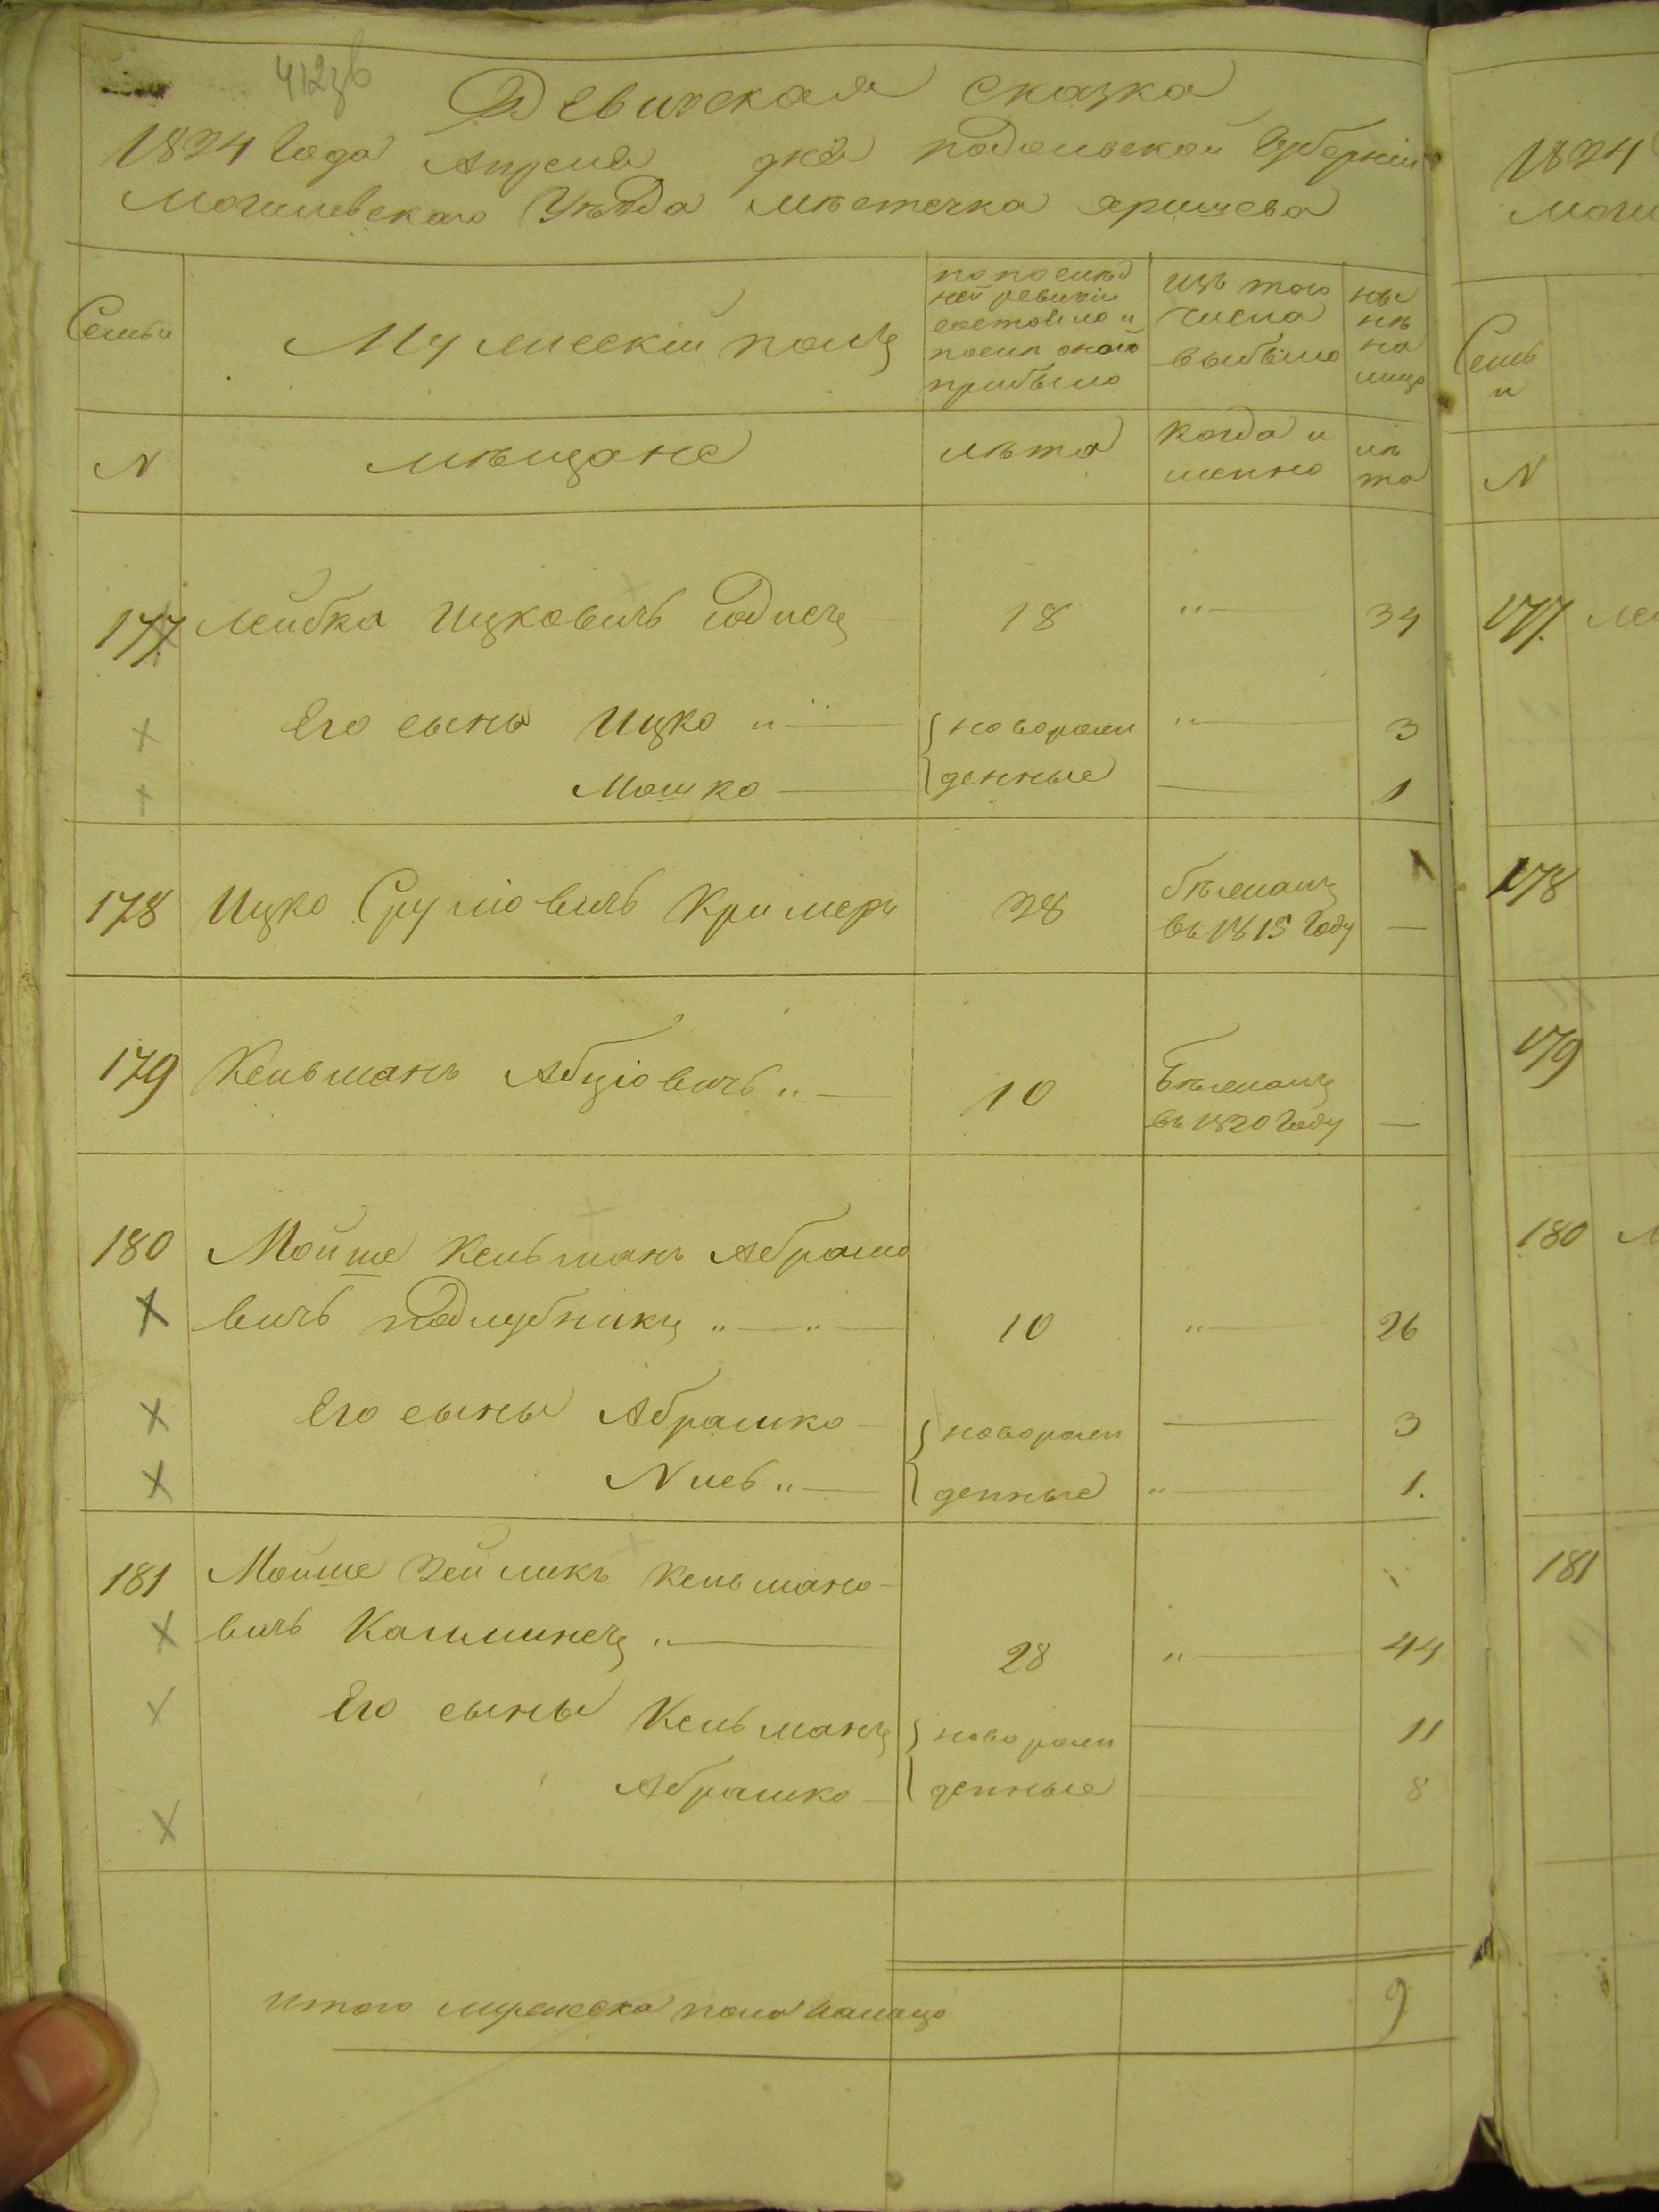 412 зв
Ревижская сказка
1834 Года Апреля дня подольской Губернии
Могилевскаго Уѣзда мѣстечка яришева
Семьи
Мужескій полъ
по послѣд
ней ревизіи
состояло и
посл онаго
прибыло
изъ того
числа
выбыло
ны
нѣ
на
лицо
N
мѣщане
лѣта
когда и
менно
лѣ
та
177
Лейбка Ицковичъ
18
"
34
Его сыны Ицко "
новорож
"
3
Мошко
денные
1
178
Ицко Сруліовичъ Кримеръ
28
бѣжалъ
въ 1815 Году
179
Кельманъ Абціовичъ "
10
Бѣжалъ
въ 1820 Году
180
Мойше Кельманъ Абрамо
вичъ Подлубникъ " "
10
"
26
Его сыны Абрамко
новорож
3
Лев "
денные
"
1.
181
Мойше Зейликъ Кельмано-
вичъ "
28
"
44
Его сыны Кельманъ
новорож
11
Абрамко
денные
8
итого мужеска пола налицо
9
1834
Семь
и
N
177.
178
179
180
181